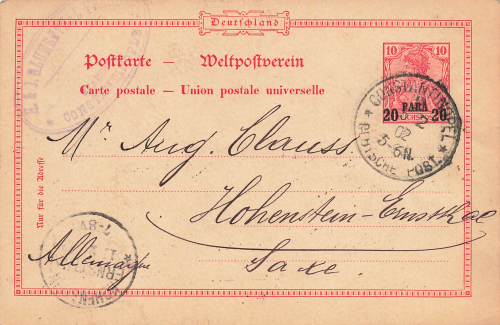 Deutschland
Postkarte – Weltpostverein
Carte postale – Union postale universelle
10 10
20 PARA 20
CONSTANTINOPEL
02
5-6N.
DEUTSCHE POST.
Mr Aug. Clauss
Nur für die Adresse
Hohenstein-Ernstthal
7-8V
Allemagne
Saxe.